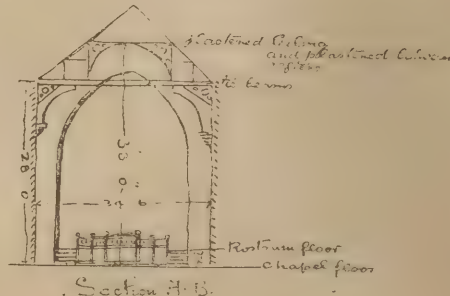 plastered ceiling
and plastered between
rafters
tie beams
30
0
28
0
34 6
Rostrum floor
Chapel floor
Section A. B.